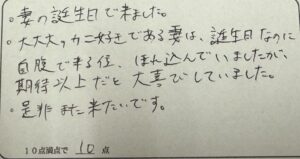 ・妻の誕生日で来ました。
・大大大カニ好きである妻は、誕生日なのに
自腹で来る位、ほれ込んでいましたが、
期待以上だと大喜びしていました。
・是非また来たいです。
10点満点で 10 点